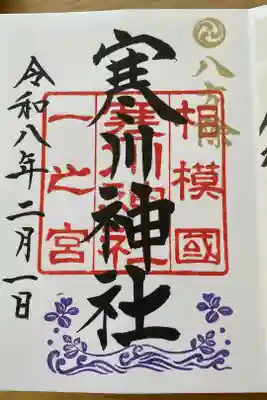 八方除
相模國
寒川神社
寒川神社
一之宮
令和八年二月一日